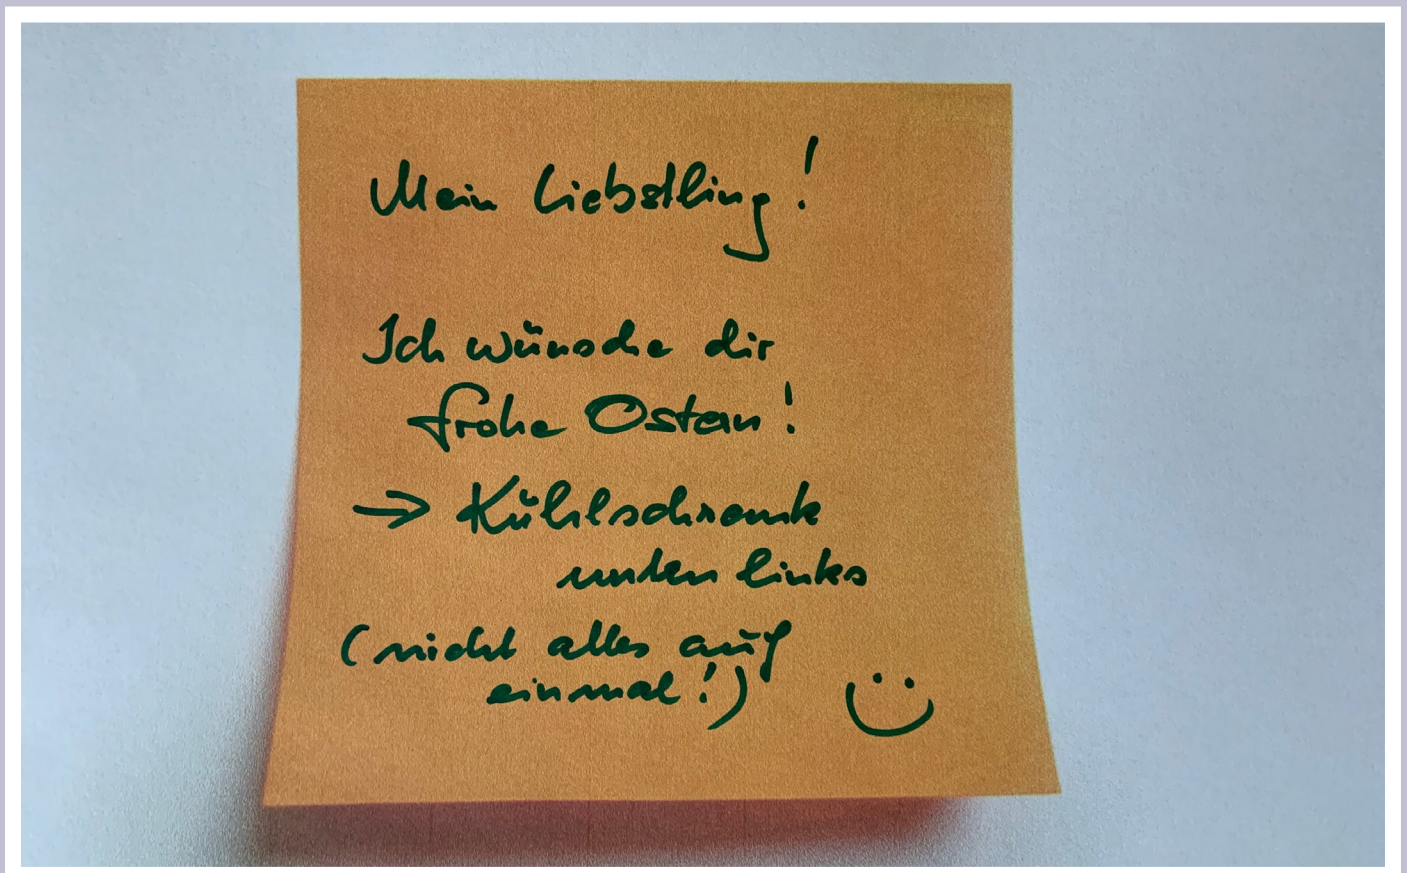 Mein Liebstling!
Ich wünsche dir
frohe Ostern!
→ Kühlschrank
unten links
(nicht alles auf
einmal!) :)